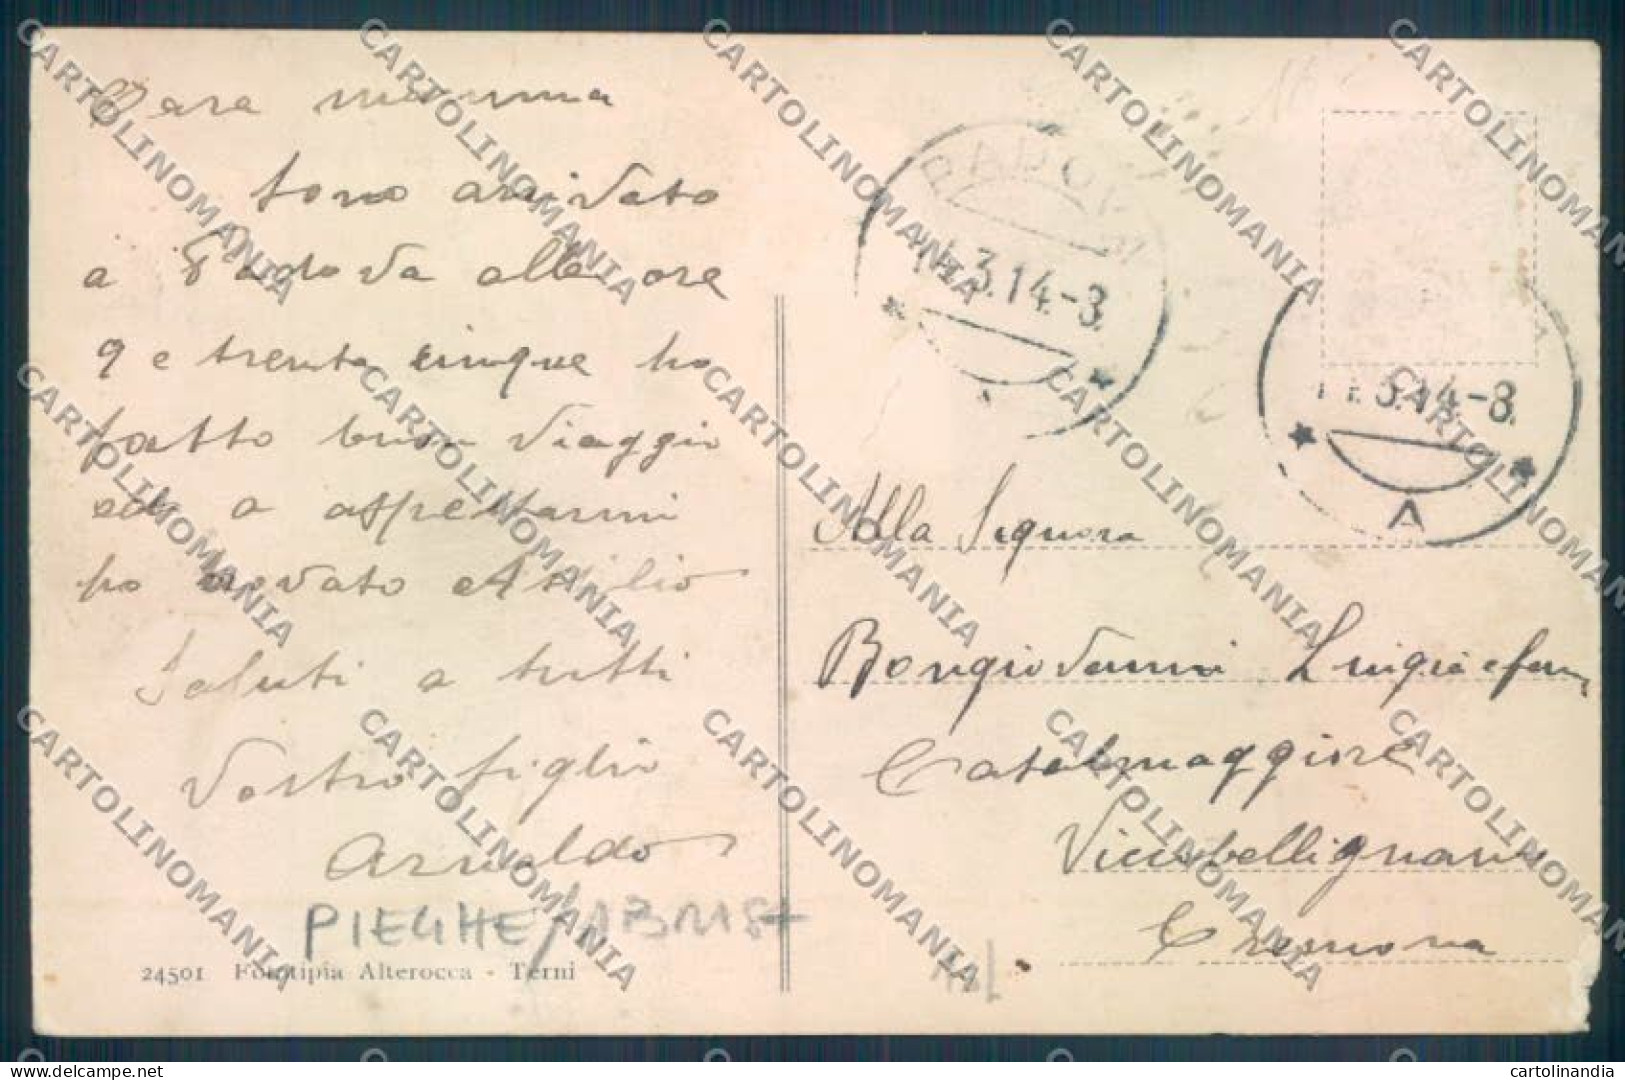 Cara mamma
sono arrivato
a Padova alle ore
9 e trenta cinque ho
fatto buon viaggio
ed a aspettarmi
ho trovato Attilio
Saluti a tutti
Vostro figlio
Arnaldo
PIEGHE
24501 Fototipia Alterocca - Terni
PADOVA
14.3.14-8.
3.14-8.
A
Alla Signora
Bongiovanni Luigia e fam
Casalmaggiore
Vicobellignano
Cremona
CARTOLINOMANIA
cartolinandia